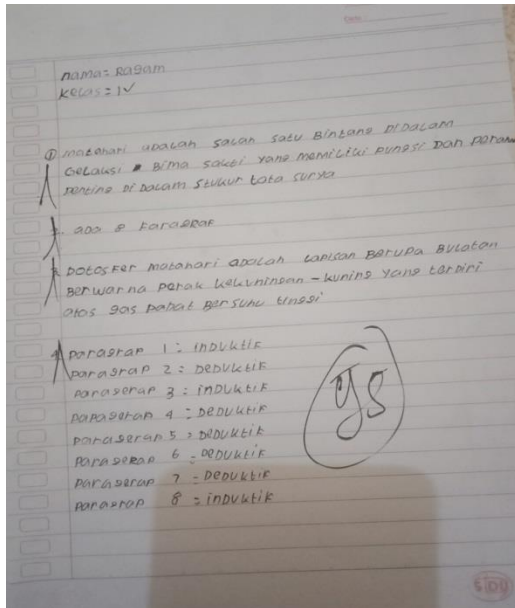 nama: Ragam
kelas: IV
① matahari adalah salah satu Bintang Didalam
Gelaksi Bima sakti yang memiliki pungsi Dan
penting Di Dalam Stukur tata surya
2. ada 8 Faragraf
3. Dotosfer matahari adalah lapisan Berupa Bulatan
Berwarna perak kekuningan - kuning yang terdiri
atas gas padat Bersuhu tinggi
4. paragrap 1 : inDuktif
paragrap 2 = DeDuktif
paragerap 3 : inDuktif
papagerap 4 = DeDuktif
paragerap 5 = DeDuktif
paragerap 6 = DeDuktif
paragerap 7 = DeDuktif
paragrap 8 = inDuktif
95
SIDU